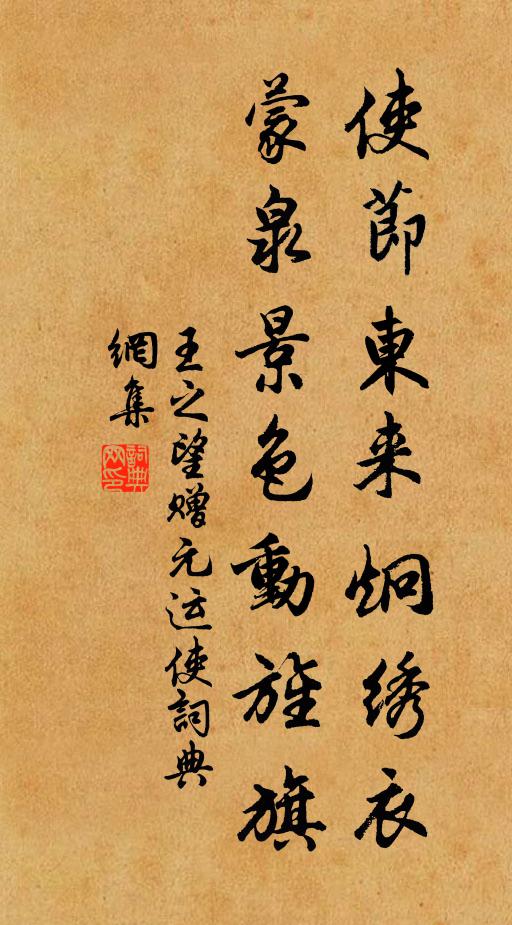 使節東来炯绣衣
蒙泉景色動旌旗
王之望赠元运使詞典
網集
詞典
网印